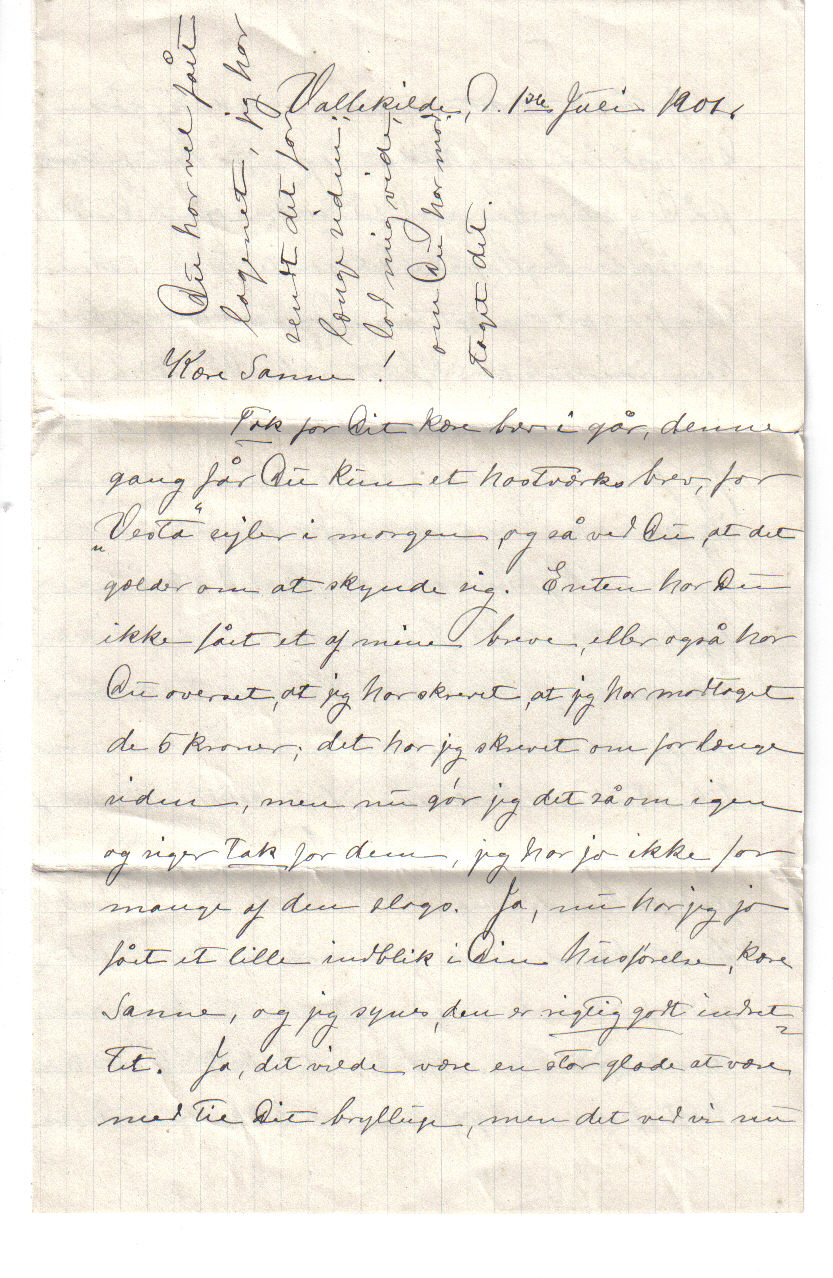 Vallekilde, d. 1ste Juli 1901.
Du har vel fået
lagenet, jeg har
sendt det for
længe siden;
lad mig vide,
om Du har mod
taget det.
Kære Sanne!
Tak for Dit kære brev i går, denne
gang får Du kun et hastværks brev, for
„Vesta“ sejler i morgen, og så ved Du, at det
gælder om at skynde sig. Enten har Du
ikke fået et af mine breve, eller også har
Du overset, at jeg har skrevet, at jeg har modtaget
de 5 kroner; det har jeg skrevet om for længe
siden, men nu gør jeg det så om igen
og siger tak for dem, jeg har jo ikke for
mange af den slags. Ja, nu har jeg jo
fået et lille indblik i Din husførelse, kære
Sanne, og jeg synes, den er rigtig godt indret-
tet. Ja, det vilde være en stor glæde at være
med til Dit bryllup, men det ved vi nu